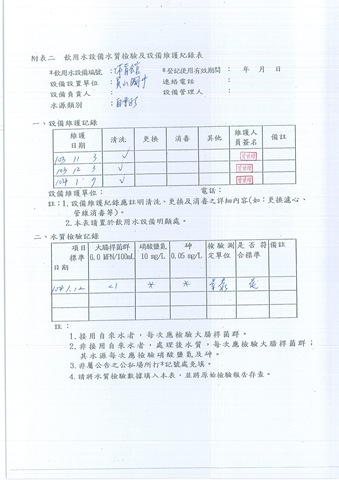 附表二 飲用水設備水質檢驗及設備維護紀錄表
*飲用水設備編號：體育館 *登記使用有效期間： 年 月 日
設備設置單位： 國中 連絡電話：
設備負責人： 設備管理人：
水源類別：自來水
一、設備維護記錄
維護日期 清洗 更換 消毒 其他 維護人員簽名 備註
103 11 3 ✓
103 12 3 ✓
104 1 9 ✓
設備維護單位： 電話：
註：1.設備維護紀錄應註明清洗、更換及消毒之詳細內容(如：更換濾心、
管線消毒等)。
2.本表請置於飲用水設備明顯處。
二、水質檢驗記錄
項目標準 日期 大腸桿菌群 6.0 MFN/100mL 硝酸鹽氮 10 mg/L 砷 0.05 mg/L 檢驗測定單位 是否符合標準 備註
104.1.12 <1 * * 是
註：
1.接用自來水者，每次應檢驗大腸桿菌群。
2.非接用自來水者，處理後水質，每次應檢驗大腸桿菌群；
其水源每次應檢驗硝酸鹽氮及砷。
3.非屬公告之公私場所打*記號處免填。
4.請將水質檢驗數據填入本表，並將原始檢驗報告存查。